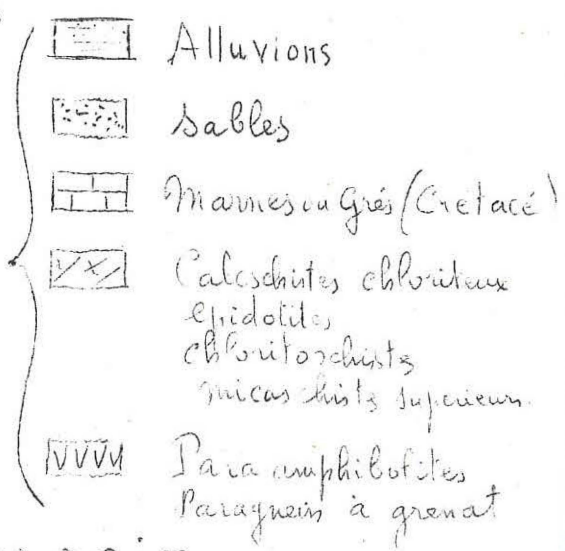 Alluvions
Sables
Marnes ou Grés (Crétacé)
Calcschistes chloriteux
épidotites
chloritoschistes
micaschistes supérieurs
Para amphibolites
Paragneiss à grenat